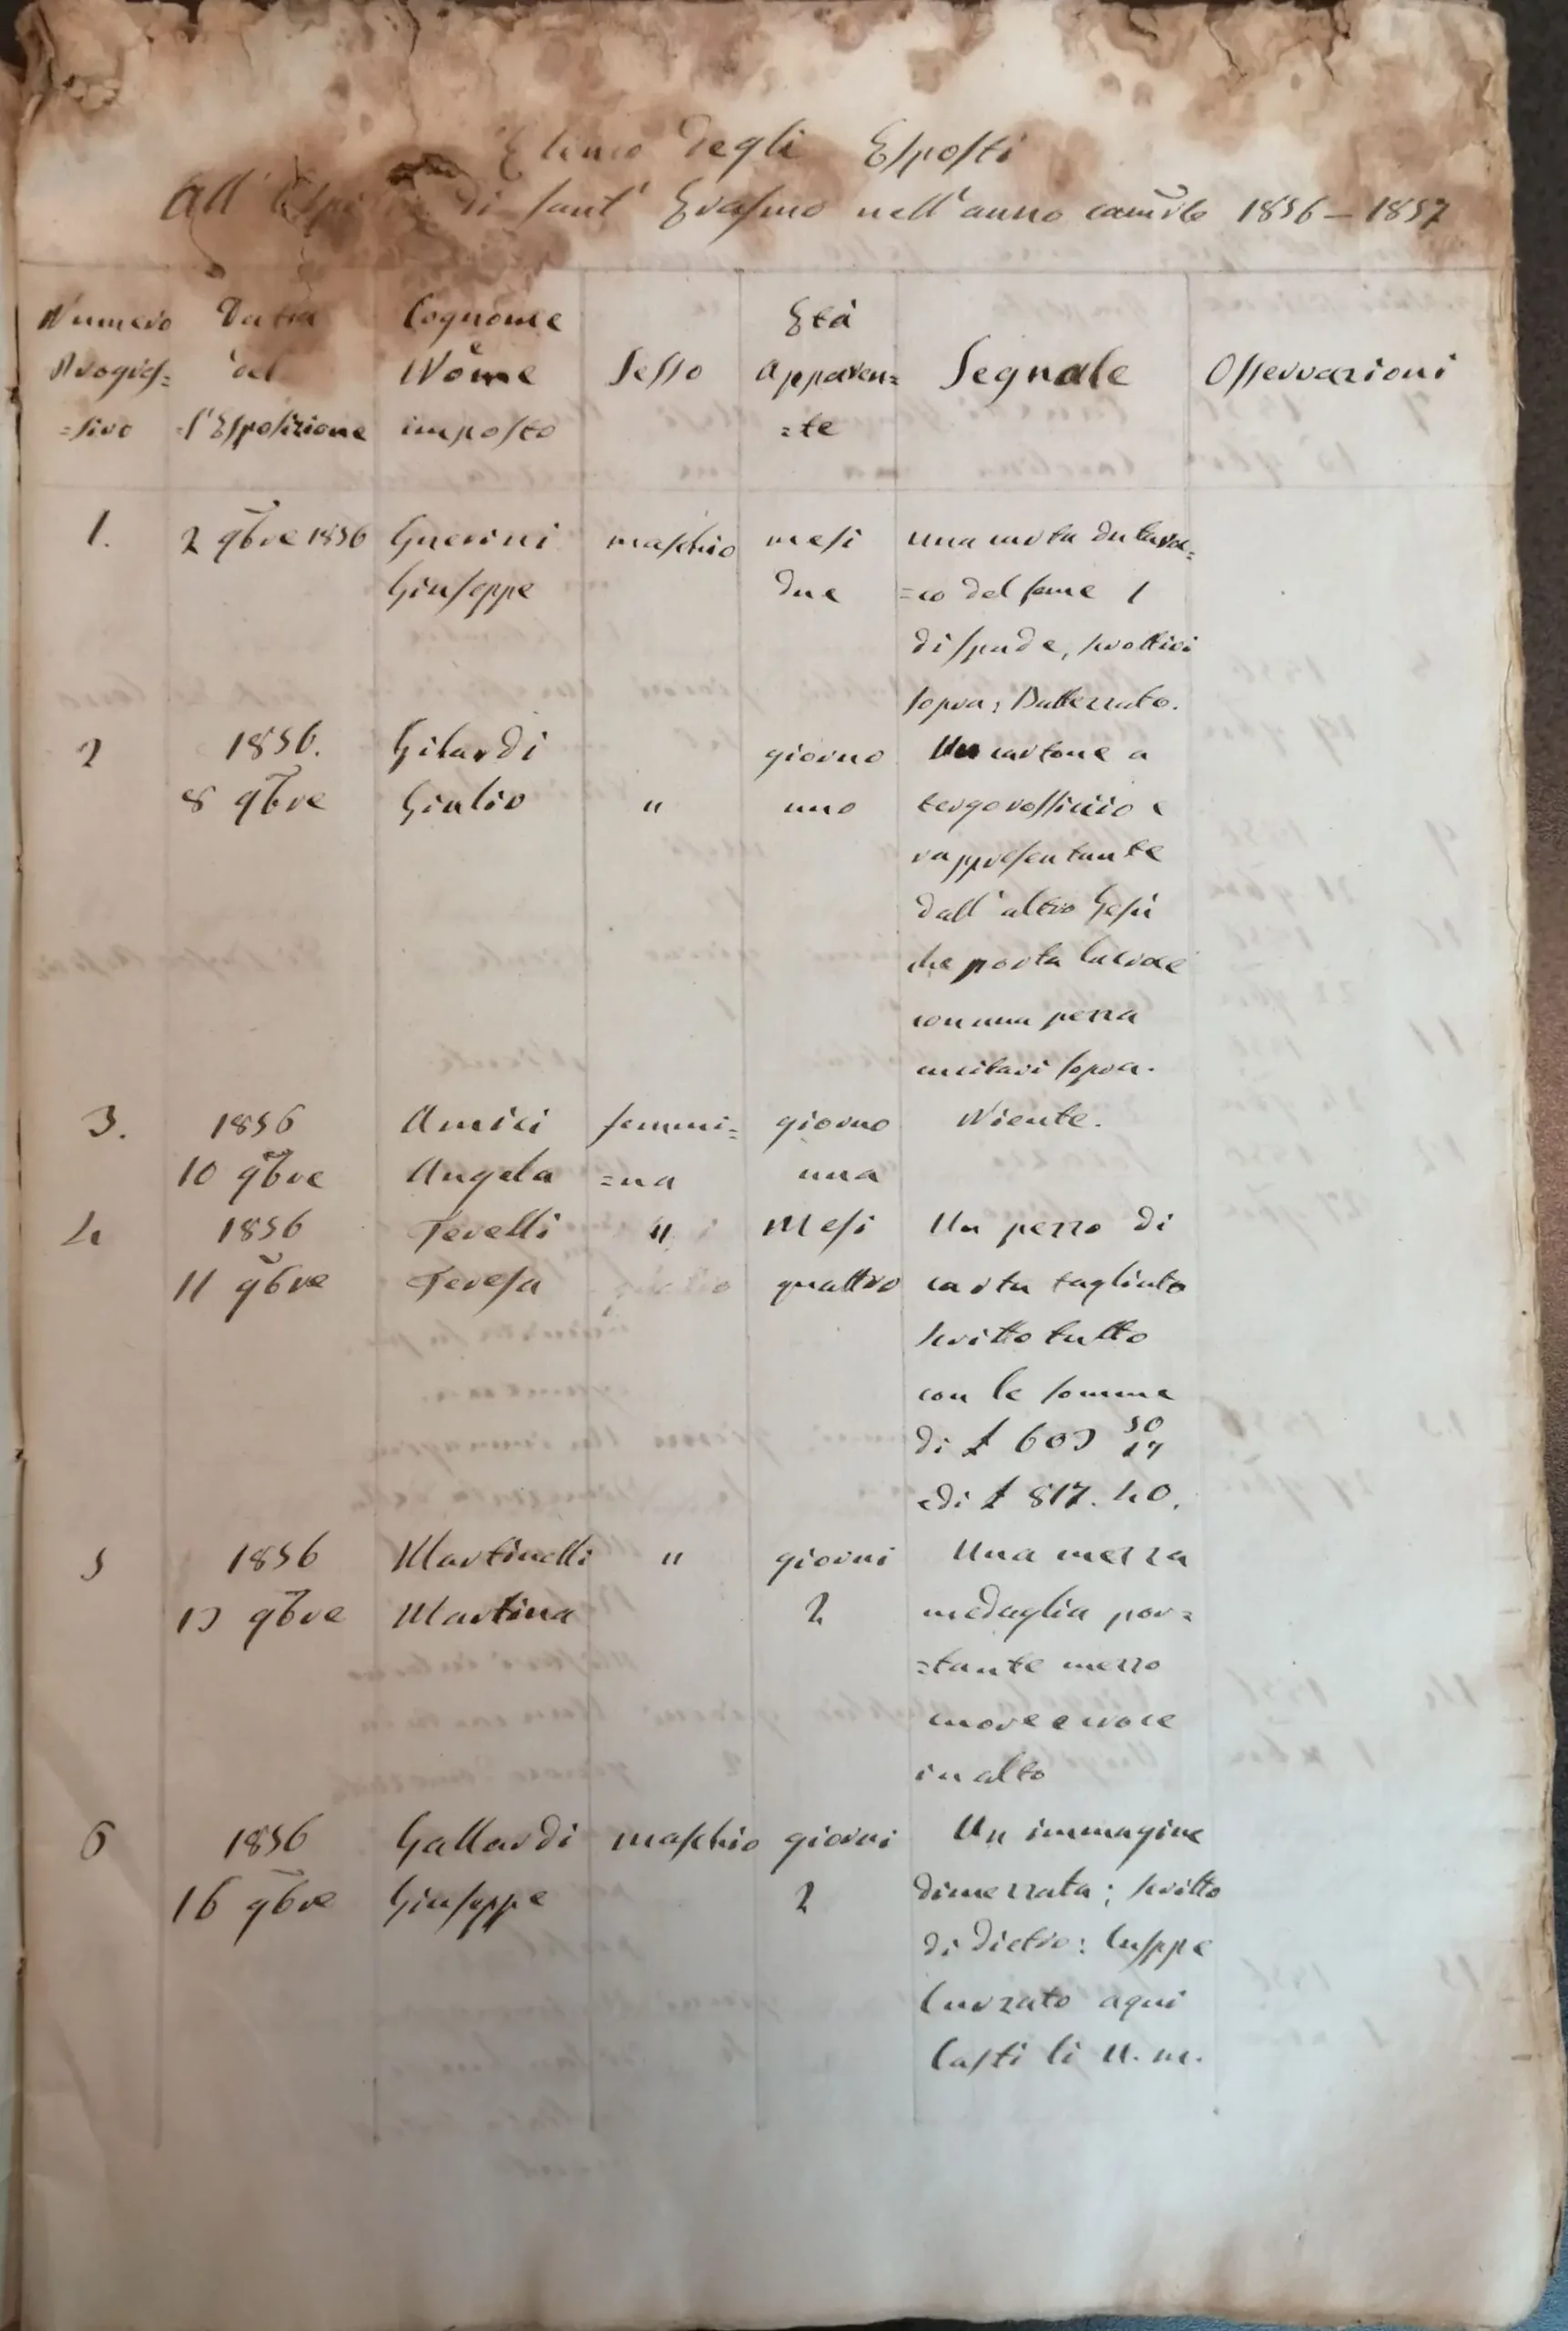 Elenco degli Esposti
All' di Sant' Erasmo nell'anno camrle 1856 – 1857
Numero Data Cognome Età
Progres= del e Nome Sesso apparen= Segnale Osservazioni
=sivo l'Esposizione imposto =te
1. 2 9bre 1856 Guerini maschio mesi una carta da taroc=
Giuseppe due =co del seme 1
di spade, scrittivi
sopra: Battezzato.
2 1856. Gilardi giorno Un cartone a
8 9bre Giulio " uno tergo rossiccio e
rappresentante
dall'altro Gesù
che porta la croce
con una pezza
sopra.
3. 1856 Amici femmi= giorno Niente.
10 9bre Angela =na una
4 1856 Terelli " Mesi Un pezzo di
11 9bre Teresa quattro carta tagliato
scritto tutto
con le somme
di £ 603 50
17
e di £ 817. 40.
5 1856 Martinelli " giorni Una mezza
13 9bre Martina 2 medaglia por=
=tante mezzo
cuore e croce
in alto
6 1856 Gallardi maschio giorni Un immagine
16 9bre Giuseppe 2 dimezzata; scritto
di dietro:
aqui
li